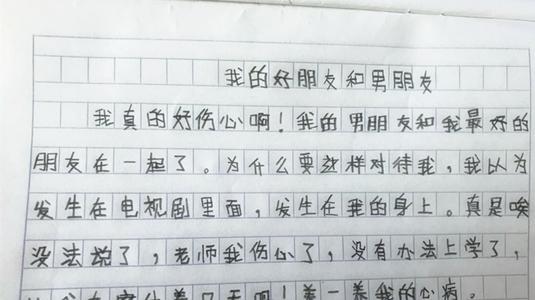 我的好朋友和男朋友
我真的好伤心啊！我的男朋友和我最好的
朋友在一起了。为什么要这样对待我，我以为
发生在电视剧里面，发生在我的身上。真是唉
没法说了，老师我伤心了，没有办法上学了，
我在家休养几天啊！养一养我的心病。